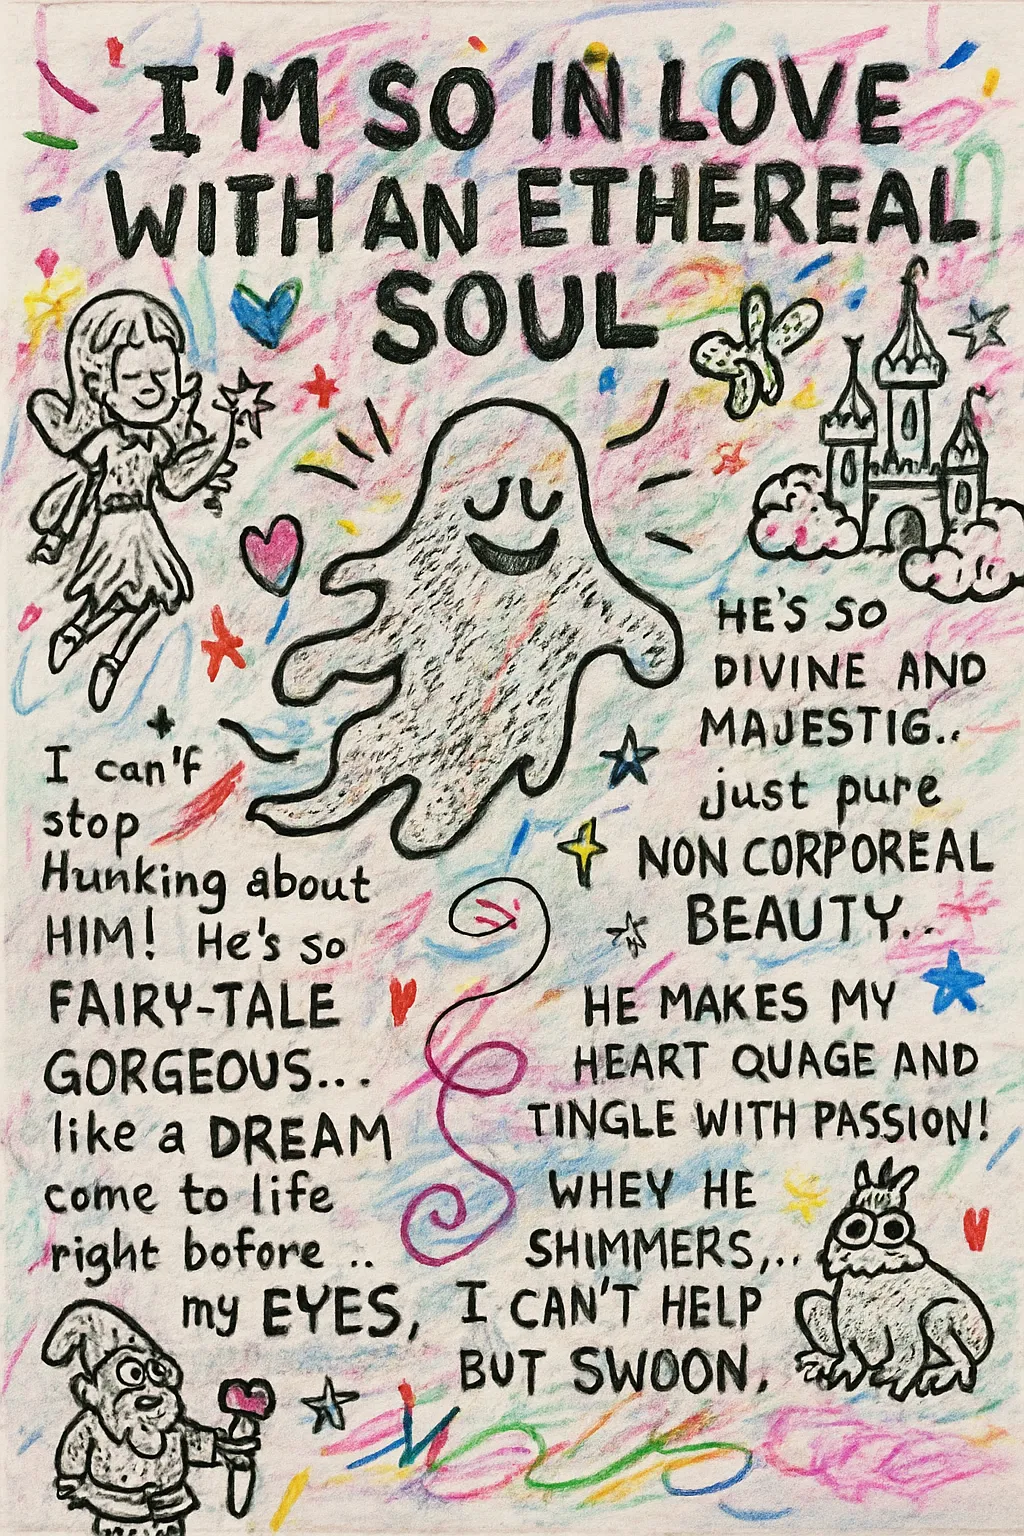 I'M SO IN LOVE
WITH AN ETHEREAL
SOUL
I can'f
stop
Hunking about
HIM! He's so
FAIRY-TALE
GORGEOUS...
like a DREAM
come to life
right bofore ..
my EYES,
HE'S SO
DIVINE AND
MAJESTIG..
just pure
NON CORPOREAL
BEAUTY..
HE MAKES MY
HEART QUAGE AND
TINGLE WITH PASSION!
WHEY HE
SHIMMERS,..
I CAN'T HELP
BUT SWOON.